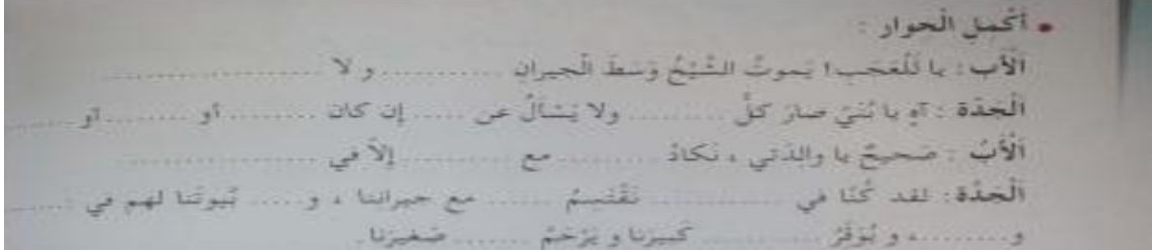 • أكمل الحوار :
الأب : يا للعجب ! يموت الشيخ وسط الجيران ........... و لا ......................
الجدة : آه يا بني صار كل .......... ولا يسأل عن ..... إن كان ........ أو ........ أو ........
الأب : صحيح يا والدتي ، نكاد ......... مع .......... إلا في ....................
الجدة : لقد كنا في ............... نقتسم ...... مع جيراننا ، و ..... بيوتنا لهم في .......
و ........، و نوقر ............ كبيرنا و يرحم ....... صغيرنا.